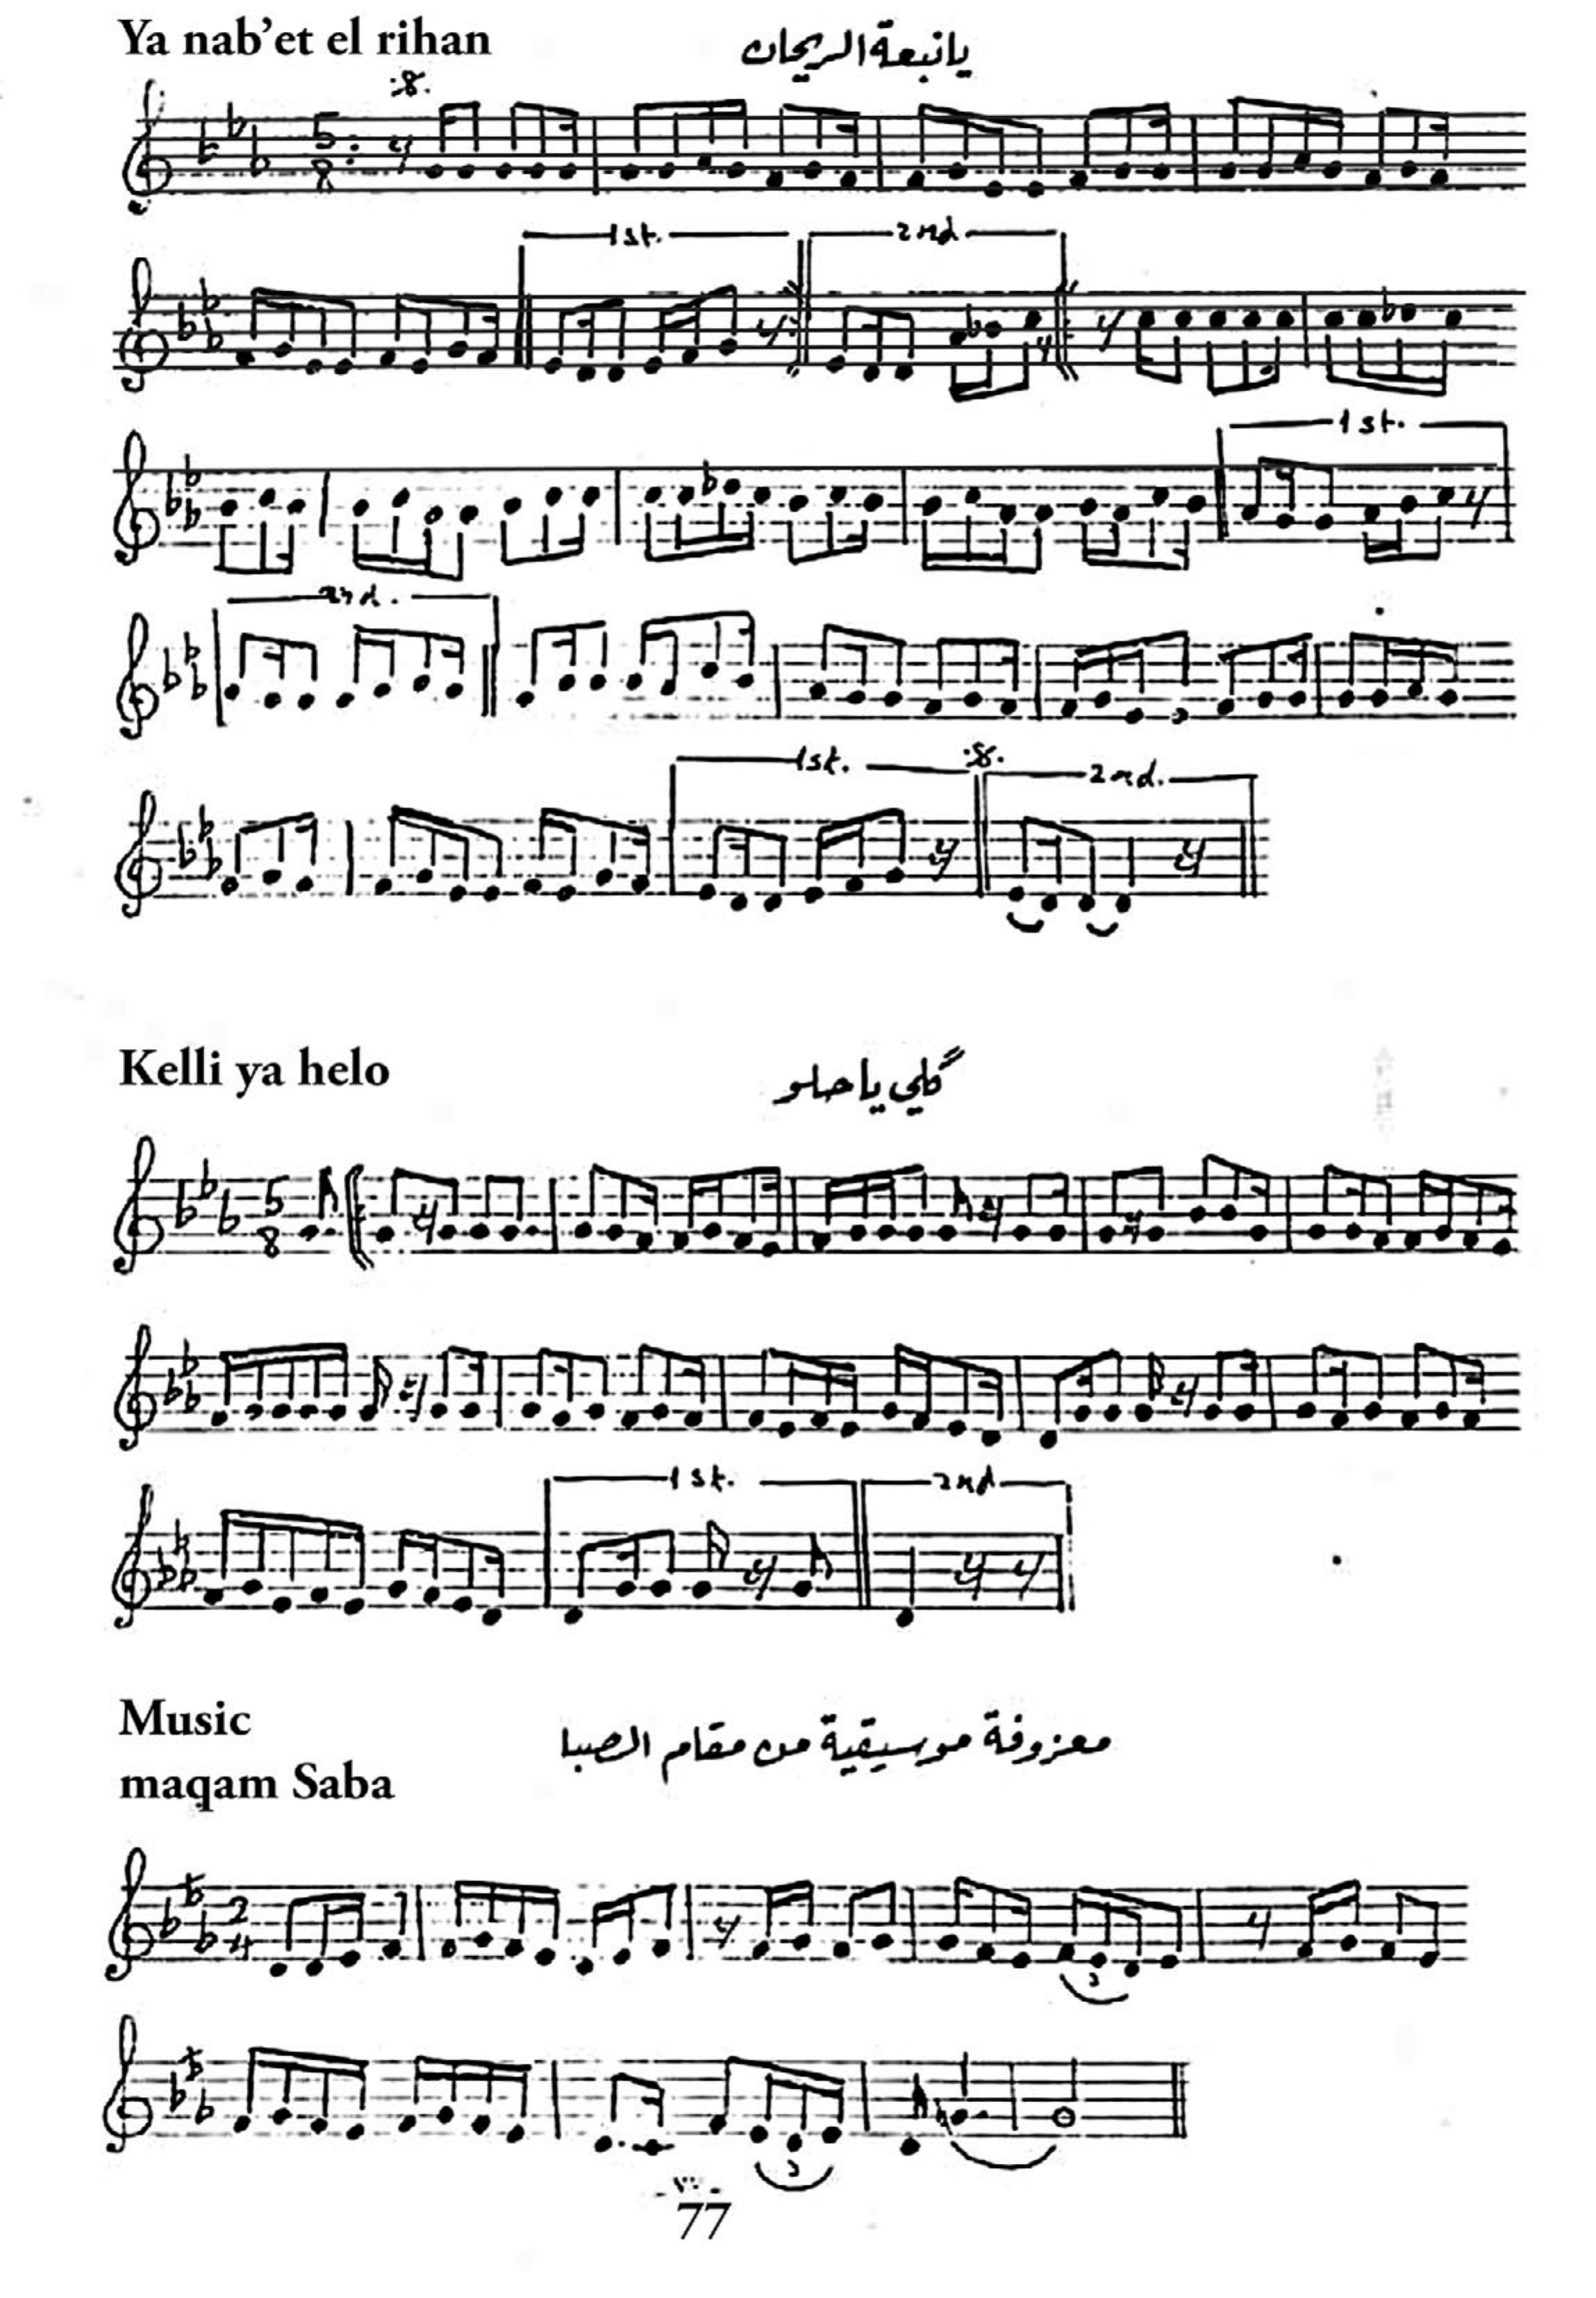 Ya nab’et el rihan
يا نبعة الريحان
5
8
1st.
2nd.
1st.
2nd.
1st.
2nd.
Kelli ya helo
گلي يا حلو
5
8
1st.
2nd
Music
maqam Saba
معزوفة موسيقية من مقام الصبا
2
4
3
3
77